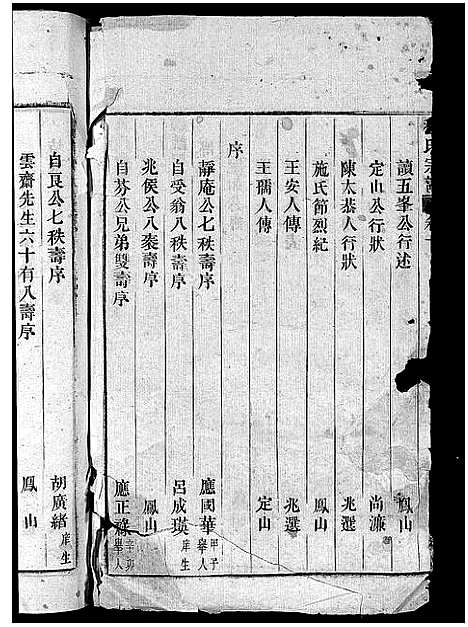 氏宗譜
讀五峯公行述 鳳山
定山公行狀 尚濂
陳太恭人行狀 兆選
施氏節烈紀 鳳山
王安人傳 兆選
王孺人傳 定山
序
靜庵公七秩壽序 應國華 甲子舉人
自受翁八秩壽序 呂成瑛 庠生
兆侯公八袠壽序 鳳山
自芬公兄弟雙壽序 應正祿 辛卯舉人
自良公七秩壽序 胡廣緒 庠生
雲齋先生六十有八壽序 鳳山